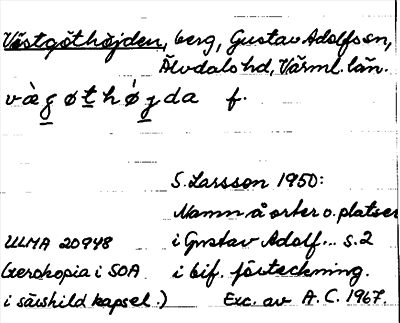 Västgöthöjden, berg, Gustav Adolfs sn,
Älvdals hd, Värml. län.
væ̀g øt hǿjda f.
S. Larsson 1950:
Namn å orter o. platser
ULMA 20948 i Gustav Adolf... s. 2
(Xerokopia i SOA i bif. förteckning.
i särskild kapsel.) Exc. av A. C. 1967.